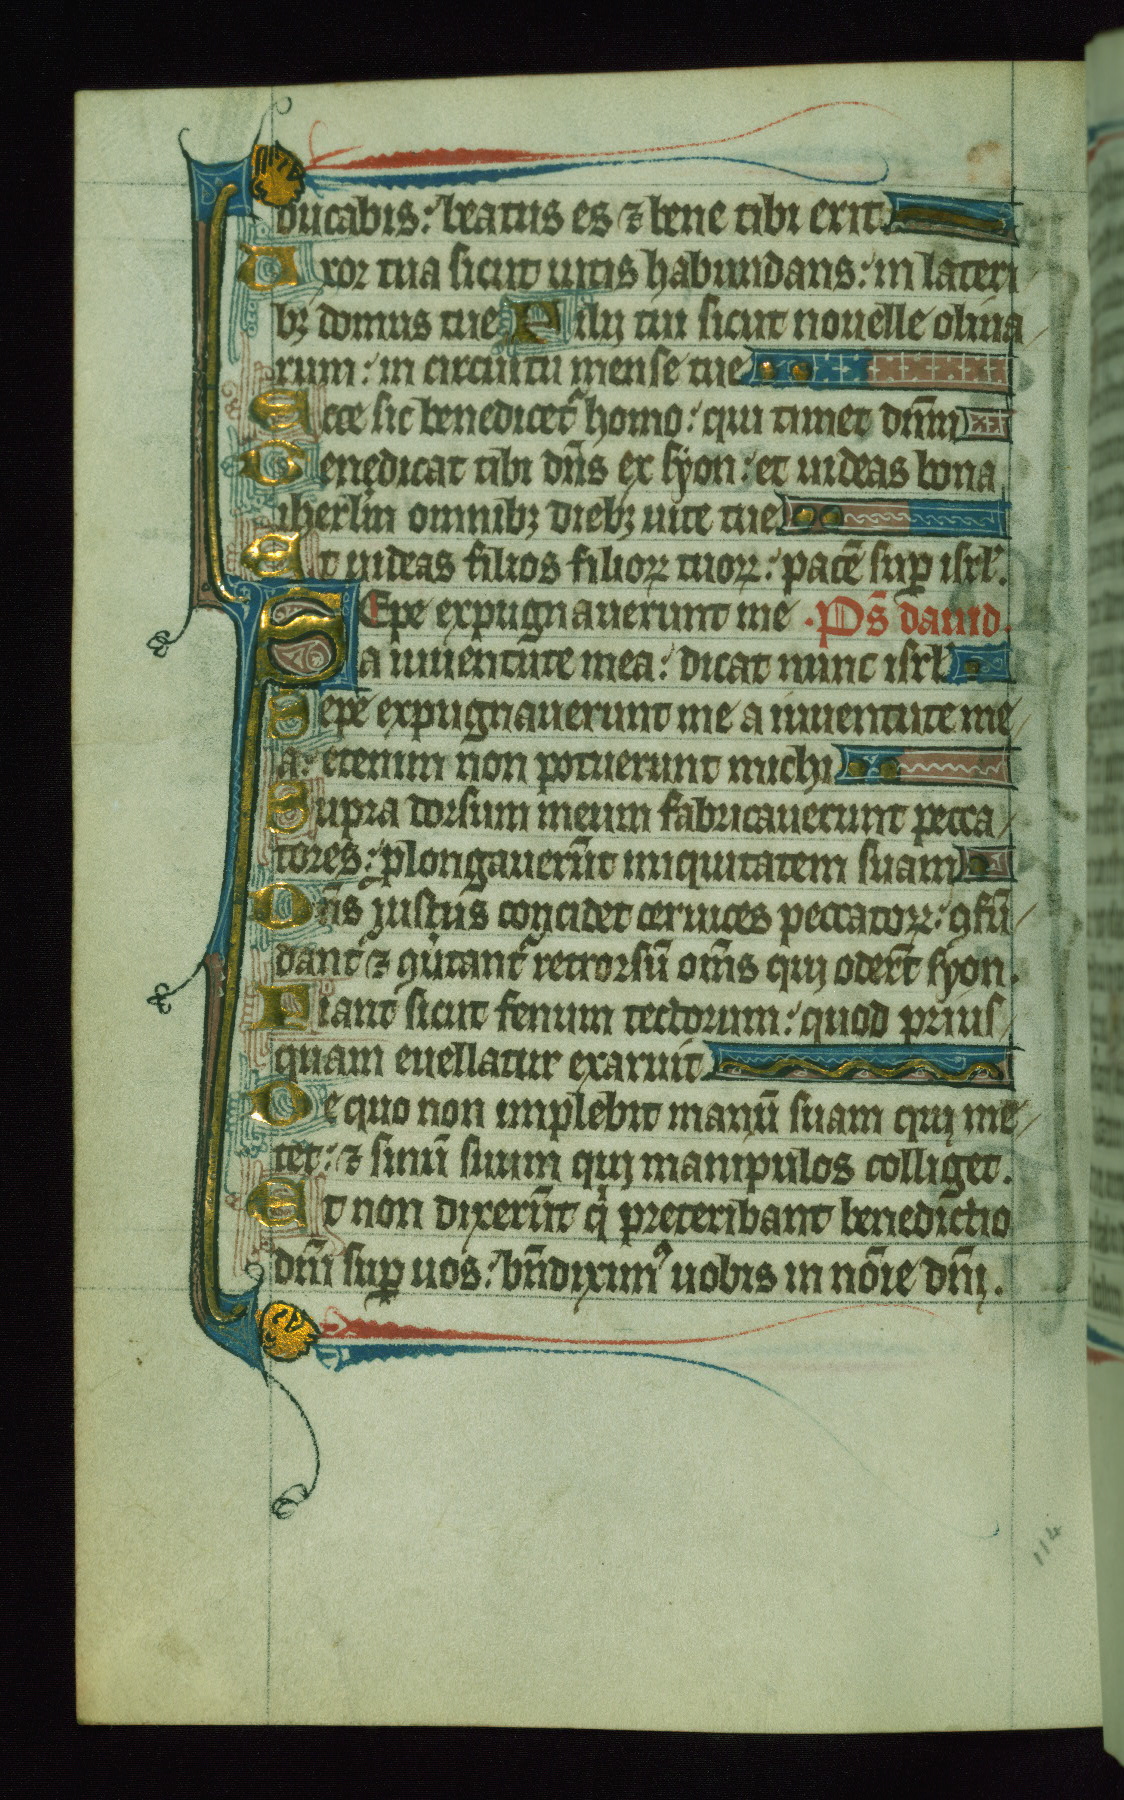 ducabis: beatus es ⁊ bene tibi erit
Uxor tua sicut uitis habundans: in lateri
bꝫ domus tue Filij tui sicut nouelle oliua
rum: in circuitu mense tue
Ecce sic benedicet᷑ homo: qui timet dn̄m
Benedicat tibi dn̄s ex syon: et uideas bona
iherl̄m omnibꝫ diebꝫ uite tue
Et uideas filios filioꝝ tuoꝝ: pacē suꝑ isrl̄.
SEpe expugnauerunt me .Ps̄ dauid.
a iuuentute mea: dicat nunc isrl̄
Sepe expugnauerunt me a iuuentute me
a: etenim non potuerunt michi
Supra dorsum meum fabricauerunt pecca
tores: ꝓlongauerūt iniquitatem suam
Dn̄s iustus concidet ceruices peccatoꝝ: ꝯfū
dant᷑ ⁊ ꝯuertant᷑ retrorsū om̄s qui oder̄t syon.
Fiant sicut fenum tectorum: quod prius
quam euellatur exaruit
De quo non implebit manū suam qui me
tet: ⁊ sinū suum qui manipulos colliget.
Et non dixerūt q̇ preteribant benedictio
dn̄i suꝑ uos: bn̄diximꝰ uobis in nōie dn̄i.
114